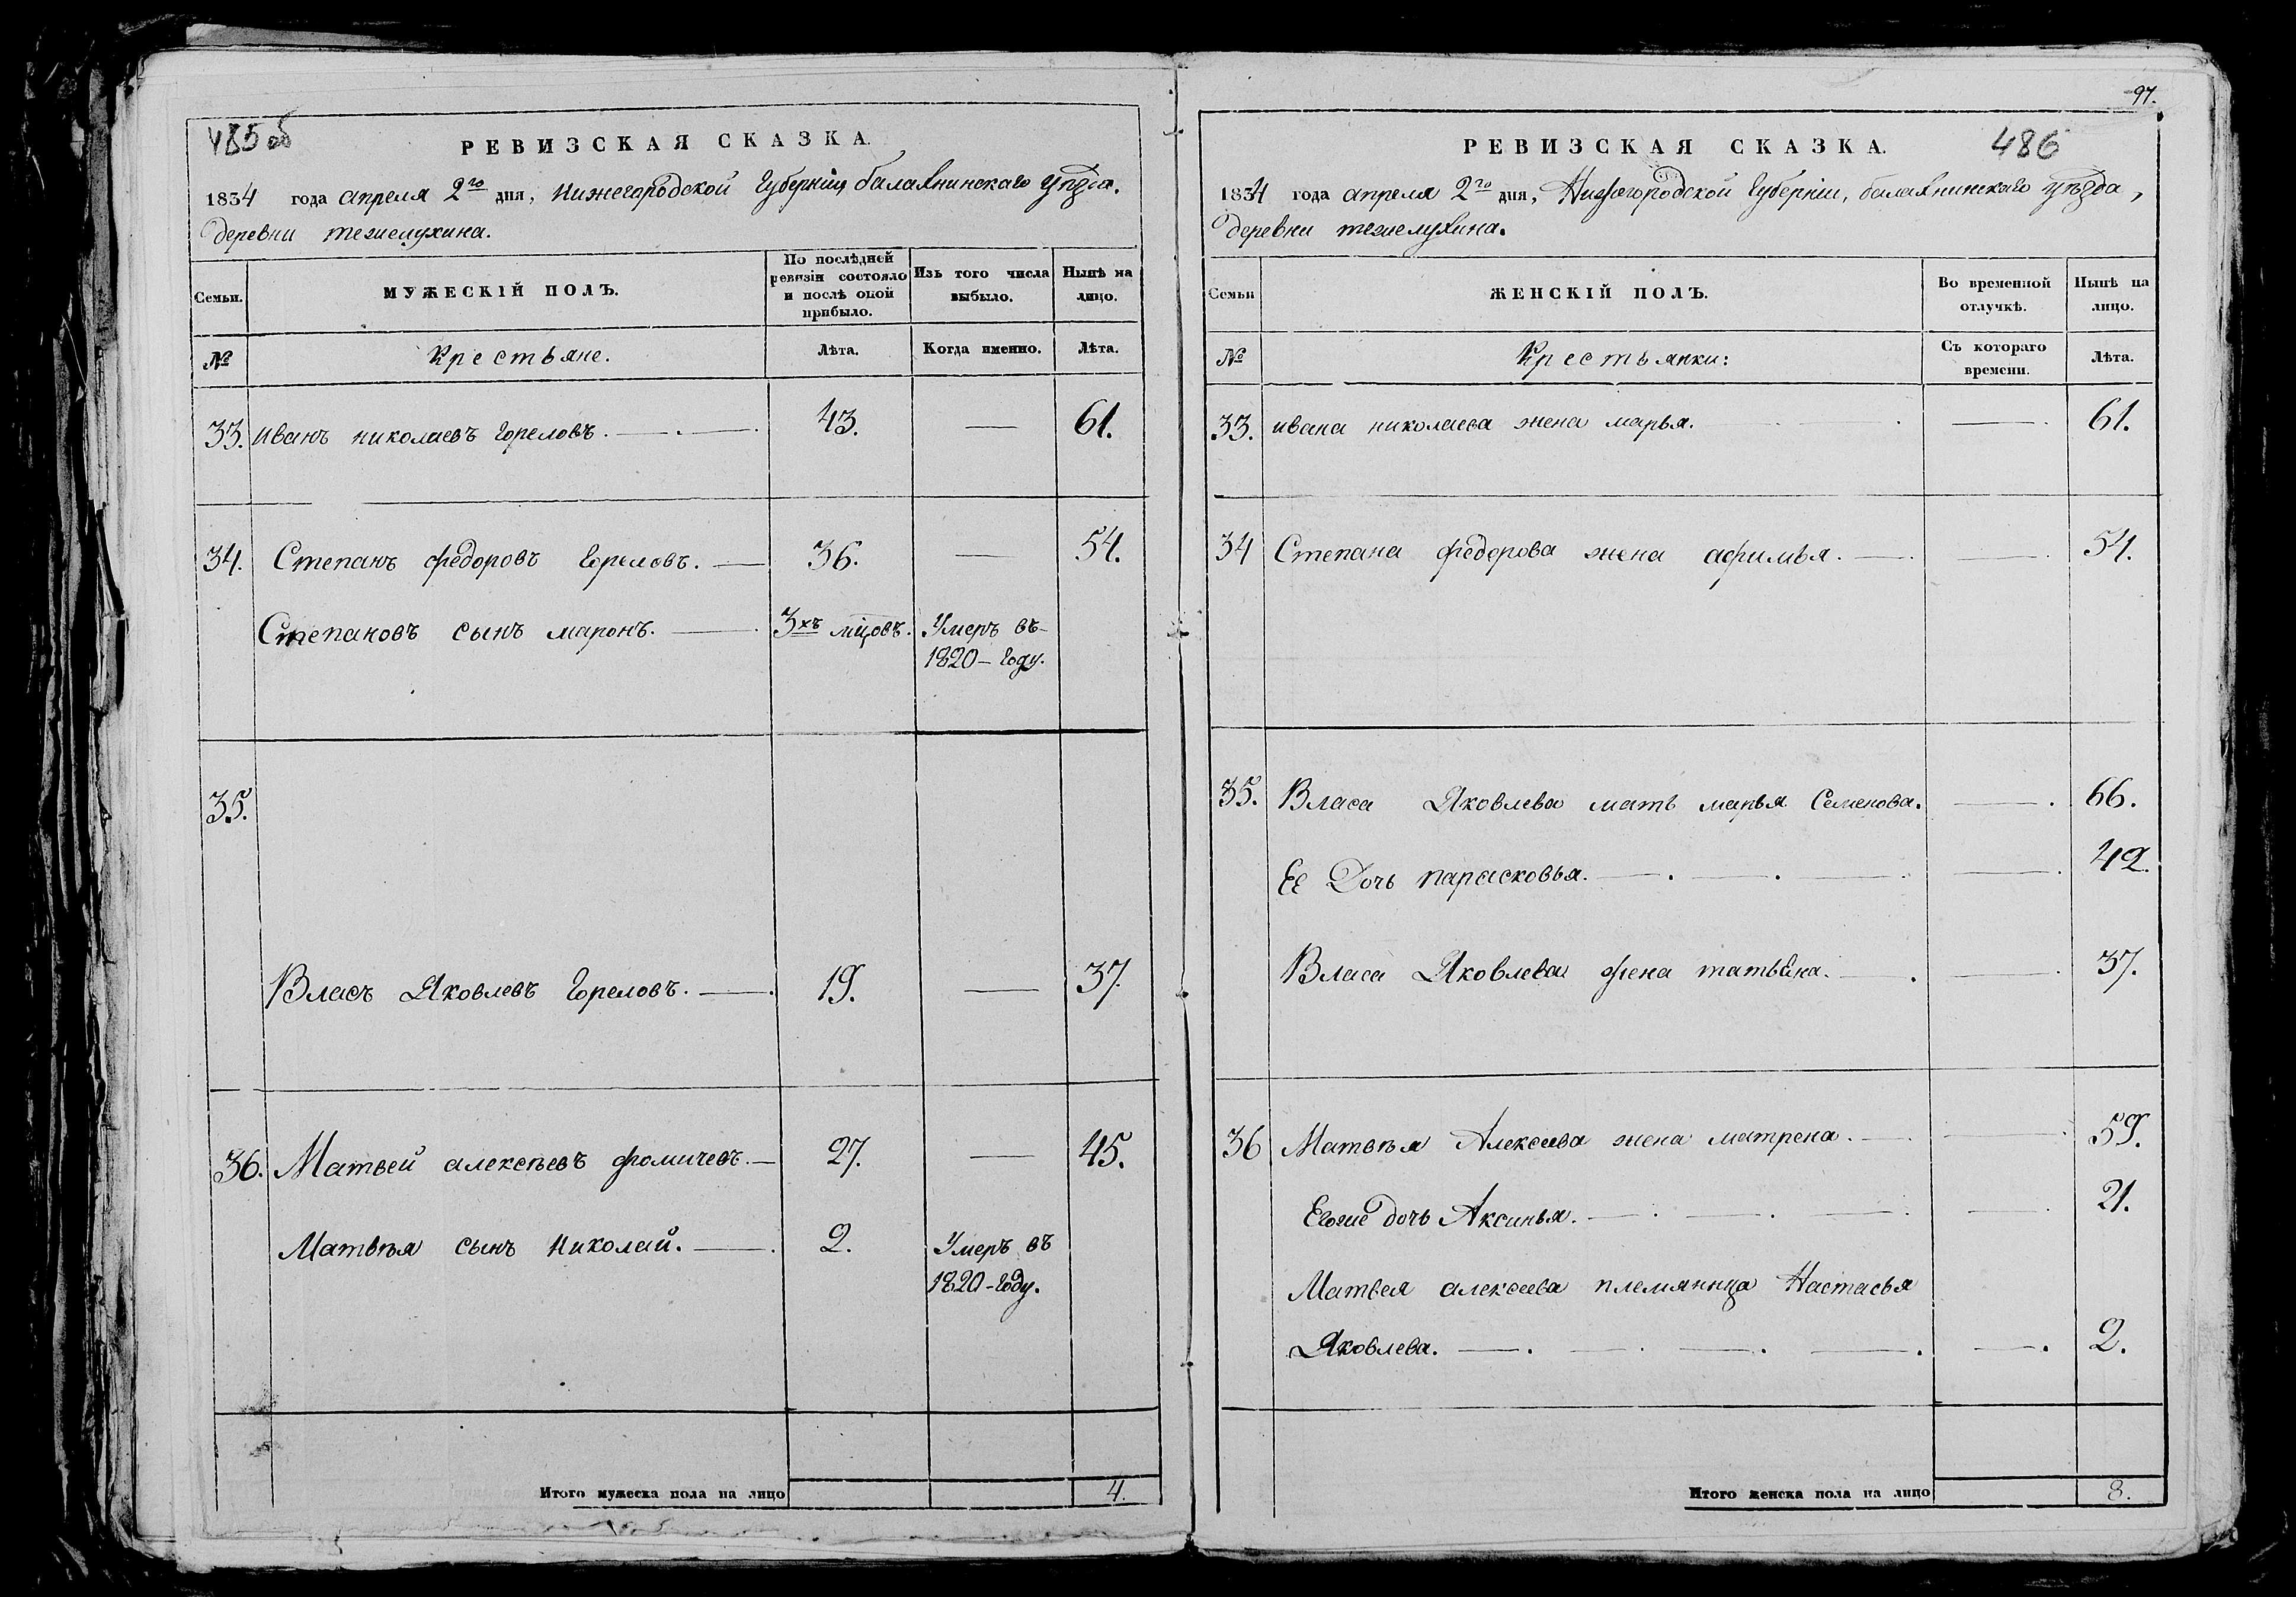 485 об
РЕВИЗСКАЯ СКАЗКА.
1834 года апреля 2го дня, Нижегородской Губернiи, балахнинскаго уѣзда.
деревни
Семьи.
МУЖЕСКIЙ ПОЛЪ.
По послѣдней ревизiи состояло и послѣ оной прибыло.
Изъ того числа выбыло.
Нынѣ на лицо.
№
Крестьяне.
Лѣта.
Когда именно.
Лѣта.
33. иванъ николаевъ Гореловъ. 43. — 61.
34. Степанъ федоровъ Гореловъ. — 36. — 54.
Степановъ сынъ маронъ. — 3хъ мцовъ. Умеръ въ
1820 – Году.
35.
Власъ Яковлевъ Гореловъ. — 19. — 37.
36. Матвей алексѣевъ фомичевъ. — 27. — 45.
Матвѣя сынъ Николай. — 2. Умеръ въ
1820 – Году.
Итого мужеска пола на лицо 4.
97.
РЕВИЗСКАЯ СКАЗКА.
486
1834 года апреля 2го дня, Нижегородской Губернiи, балахнинскаго уѣзда,
деревни
Семьи
ЖЕНСКIЙ ПОЛЪ.
Во временной отлучкѣ.
Нынѣ на лицо.
№
Крестьянки:
Съ котораго времени.
Лѣта.
33. ивана николаева жена марья. — 61.
34 Степана федорова жена афимья. — 54.
35. Власа Яковлева мать марья Семенова. — 66.
Ее Дочь парасковья. — 42.
Власа Яковлева жена татьяна. — 37.
36 Матвѣя Алексеева жена матрена. — 59.
Егоже дочь Аксинья. — 21.
Матвея алексеева племянница Настасья
Яковлева. — 2.
Итого женска пола на лицо 8.